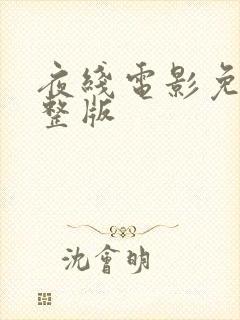 夜綫電影免
整版
沈會明